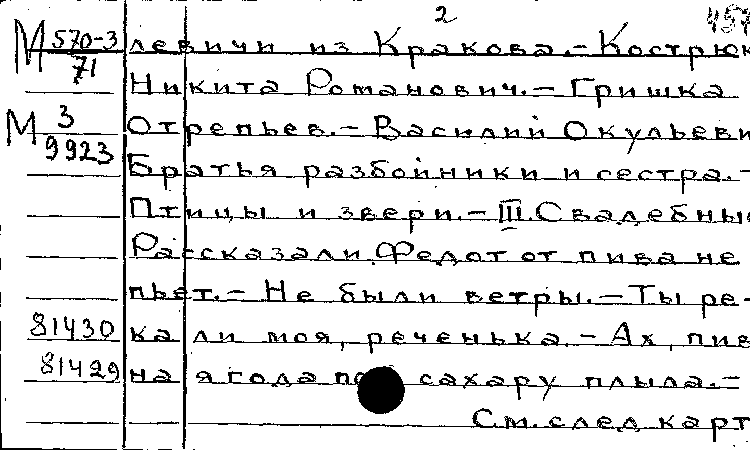 2
М 570-3/71 левичи из Кракова.-Кострюк
Никита Романович.- Гришка
М 3/9923 Отрепьев.- Василий Окульеви
Братья разбойники и сестра.-
Птицы и звери.- III. Свадебны
Рассказали, Федот от пива не
пьет.- Не были ветры.- Ты ре-
81430 ка ли моя, реченька.- Ах, пив
81429 на ягода по сахару плыла.-
См. след карт